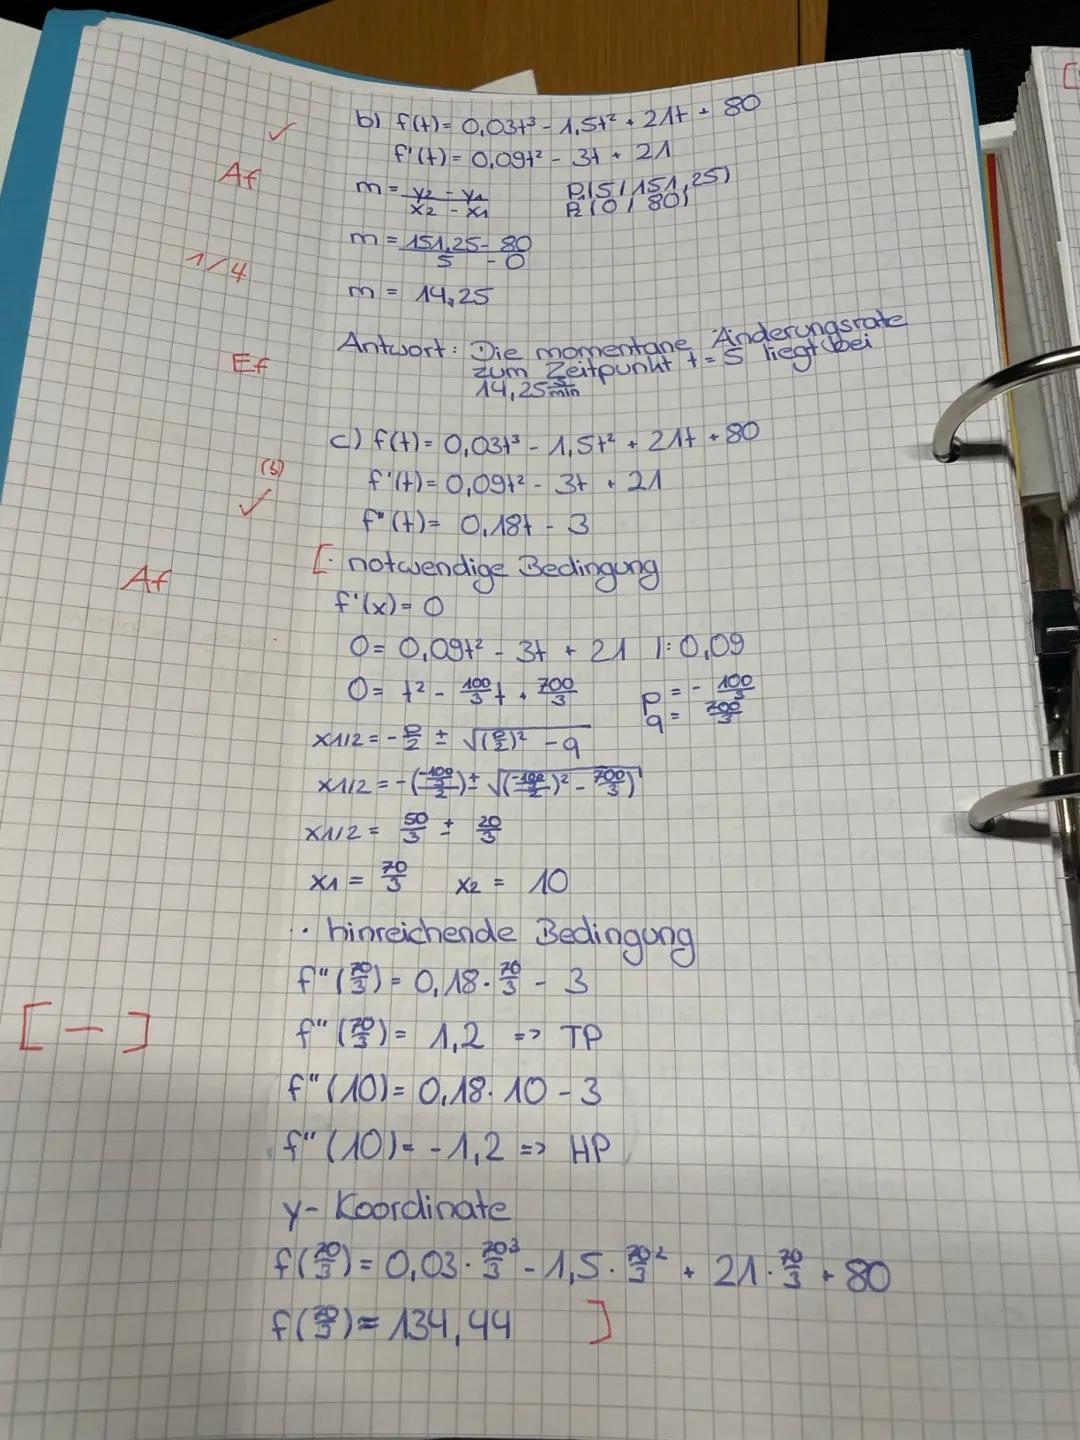 ✓ b) f(t) = 0,03t³ - 1,5t² + 21t + 80
f'(t) = 0,09t² - 3t + 21
Af m = y2 - y1 / x2 - x1 P1(5 / 151,25)
P2(0 / 80)
m = 151,25 - 80 / 5 - 0
1/4
m = 14,25
Antwort: Die momentane Änderungsrate
Ef zum Zeitpunkt t = 5 liegt bei
14,25 /min
c) f(t) = 0,03t³ - 1,5t² + 21t + 80
✓ f'(t) = 0,09t² - 3t + 21
f''(t) = 0,18t - 3
Af [· notwendige Bedingung
f'(x) = 0
0 = 0,09t² - 3t + 21 |: 0,09
0 = t² - 100/3 t + 700/3 p = - 100/3
q = 700/3
x1/2 = - p/2 ± √((p/2)² - q
x1/2 = -(-100/3/2) ± √((-100/3/2)² - 700/3)
x1/2 = 50/3 ± 20/3
x1 = 70/3 x2 = 10
· hinreichende Bedingung
f''(70/3) = 0,18 · 70/3 - 3
[ — ] f''(70/3) = 1,2 => TP
f''(10) = 0,18 · 10 - 3
f''(10) = -1,2 => HP
y- Koordinate
f(70/3) = 0,03 · 70/3³ - 1,5 · 70/3² + 21 · 70/3 + 80
f(70/3) ≈ 134,44 ]
[